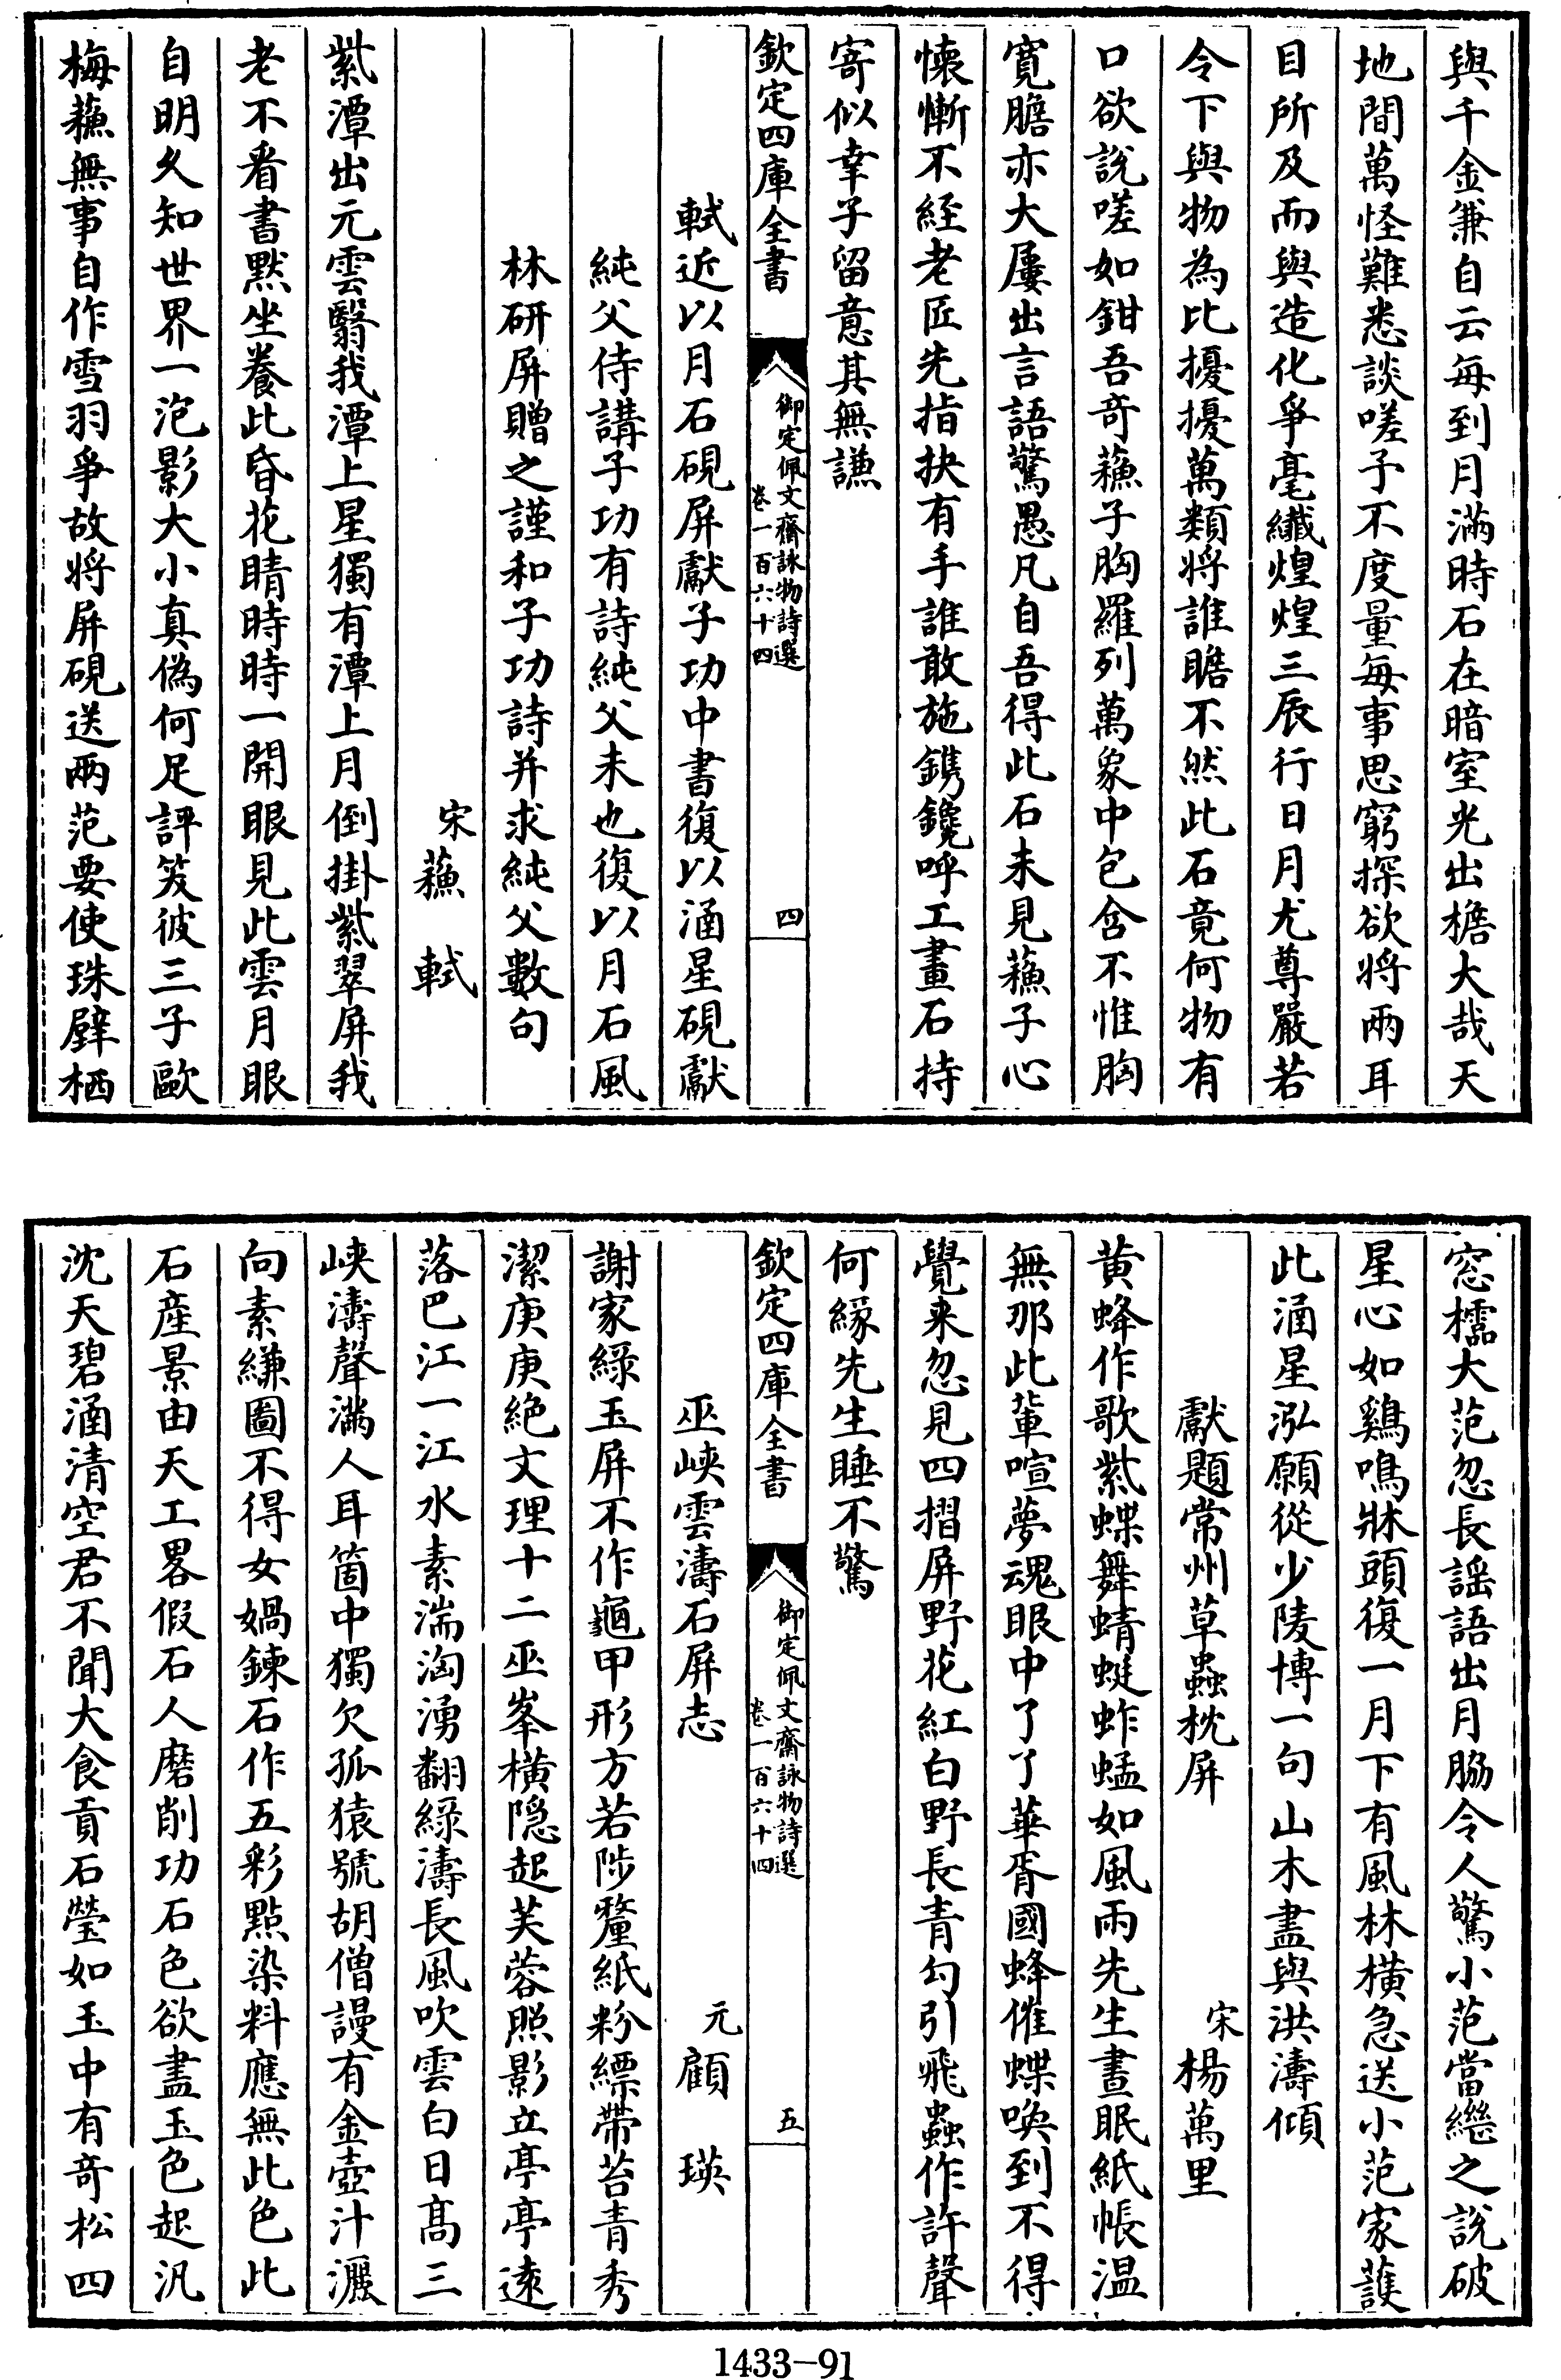 與千金兼自云每到月滿時石在暗室光出檐大哉天
地間萬怪難悉談嗟予不度量每事思窮探欲將兩耳
目所及而與造化爭毫纖煌煌三辰行日月尤尊嚴若
令下與物為比擾擾萬類將誰瞻不然此石竟何物有
口欲說嗟如鉗吾奇蘓子胸羅列萬象中包含不惟胸
寛膽亦大屢出言語驚愚凡自吾得此石未見蘓子心
懐慚不經老匠先指抉有手誰敢施鐫鑱呼工畫石持
寄似幸子留意其無謙
欽定四庫全書
御定佩文齋詠物詩選
卷一百六十四
四
軾近以月石硯屏獻子功中書復以涵星硯獻
純父侍講子功有詩純父未也復以月石風
林研屏贈之謹和子功詩并求純父數句
宋蘓軾
紫潭出元雲翳我潭上星獨有潭上月倒掛紫翠屏我
老不看書默坐養此昏花睛時時一開眼見此雲月眼
自明久知世界一泡影大小真偽何足評笑彼三子歐
梅蘓無事自作雪羽爭故將屏硯送兩范要使珠璧栖
窓櫺大范忽長謡語出月脇令人驚小范當繼之說破
星心如鷄鳴牀頭復一月下有風林橫急送小范家護
此涵星泓願從少陵博一句山木盡與洪濤傾
獻題常州草蟲枕屏
宋楊萬里
黄蜂作歌紫蝶舞蜻蜓蚱蜢如風雨先生晝眠紙帳温
無那此輩喧夢魂眼中了了華胥國蜂催蝶喚到不得
覺来忽見四摺屏野花紅白野長青勾引飛蟲作許聲
何緣先生睡不驚
欽定四庫全書
御定佩文齋詠物詩選
卷一百六十四
五
巫峽雲濤石屏志
元顧瑛
謝家緑玉屏不作龜甲形方若陟釐紙粉縹帶苔青秀
潔庚庚絶文理十二巫峯橫隠起芙蓉照影立亭亭遠
落巴江一江水素湍洶湧翻緑濤長風吹雲白日髙三
峽濤聲滿人耳箇中獨欠孤猿號胡僧謾有金壺汁灑
向素縑圖不得女媧鍊石作五彩點染料應無此色此
石産景由天工畧假石人磨削功石色欲盡玉色起汎
沈天碧涵清空君不聞大食貢石瑩如玉中有竒松四
1433-91